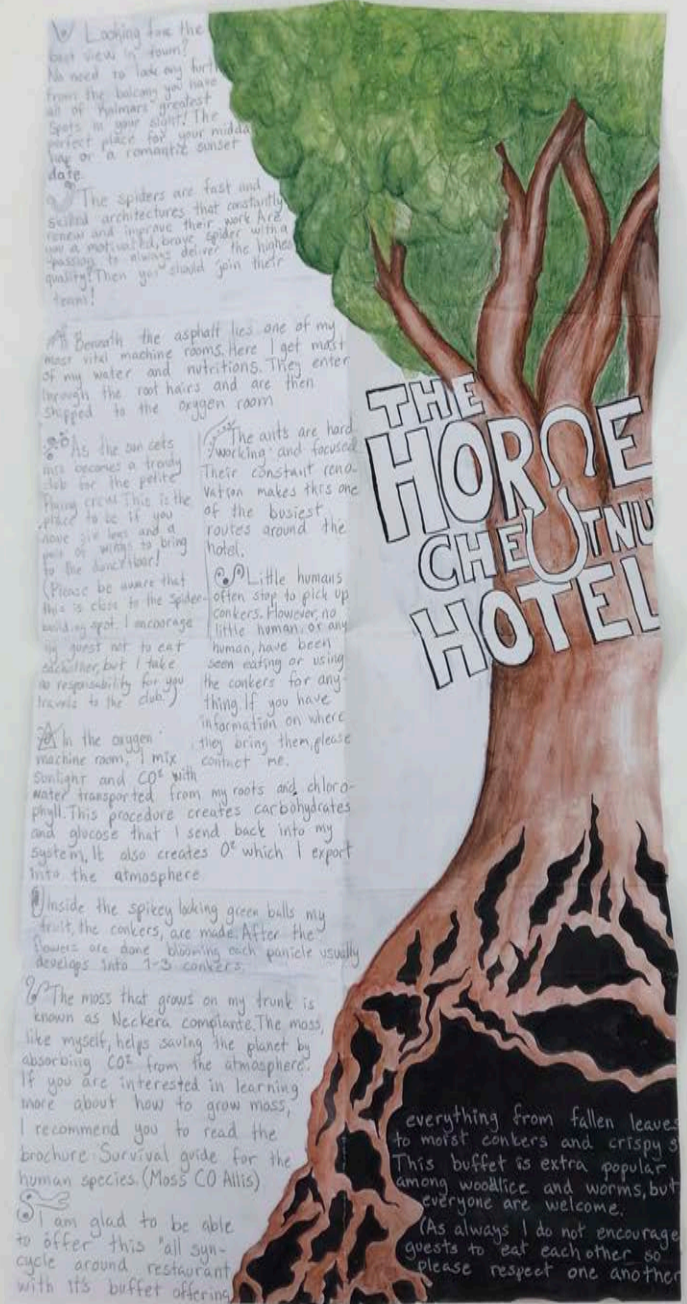 Looking for the
best view in town?
No need to look any furth
from the balcony you have
all of Kalmars greatest
spots in your sight! The
perfect place for your midda
or a romantic sunset
date.
The spiders are fast and
skilled architectures that constantly
renew and improve their work. Are
you a motivated, brave spider with a
passion to always deliver the highes
quality? Then you should join their
team!
Beneath the asphalt lies one of my
most vital machine rooms. Here I get most
of my water and nutritions. They enter
through the root hairs and are then
shipped to the oxygen room
As the sun sets
this becomes a trendy
club for the petite
flying crew. This is the
place to be if you
have six legs and a
pair of wings to bring
to the dancefloor!
(Please be aware that
this is close to the spider-
building spot. I encourage
my guest not to eat
eachother, but I take
no responsibility for you
travels to the club.)
The ants are hard
working and focused
Their constant reno-
vation makes this one
of the busiest
routes around the
hotel.
Little humans
often stop to pick up
conkers. However, no
little human, or any
human, have been
seen eating or using
the conkers for any-
thing. If you have
information on where
they bring them, please
contact me.
In the oxygen
machine room, I mix
sunlight and CO² with
water transported from my roots and chloro-
phyll. This procedure creates carbohydrates
and glucose that I send back into my
system. It also creates O² which I export
into the atmosphere
Inside the spikey looking green balls my
fruit, the conkers, are made. After the
flowers are done blooming each panicle usually
develops into 1-3 conkers.
The moss that grows on my trunk is
known as Neckera complante. The moss,
like myself, helps saving the planet by
absorbing CO² from the atmosphere.
If you are interested in learning
more about how to grow moss,
I recommend you to read the
brochure Survival guide for the
human species. (Moss CO Allis)
I am glad to be able
to offer this "all syn-
cycle around restaurant
with it's buffet offering
THE
HORSE
CHESTNU
HOTEL
everything from fallen leaves
to moist conkers and crispy s
This buffet is extra popular
among woodlice and worms, but
everyone are welcome.
(As always I do not encourage
guests to eat each other so
please respect one another